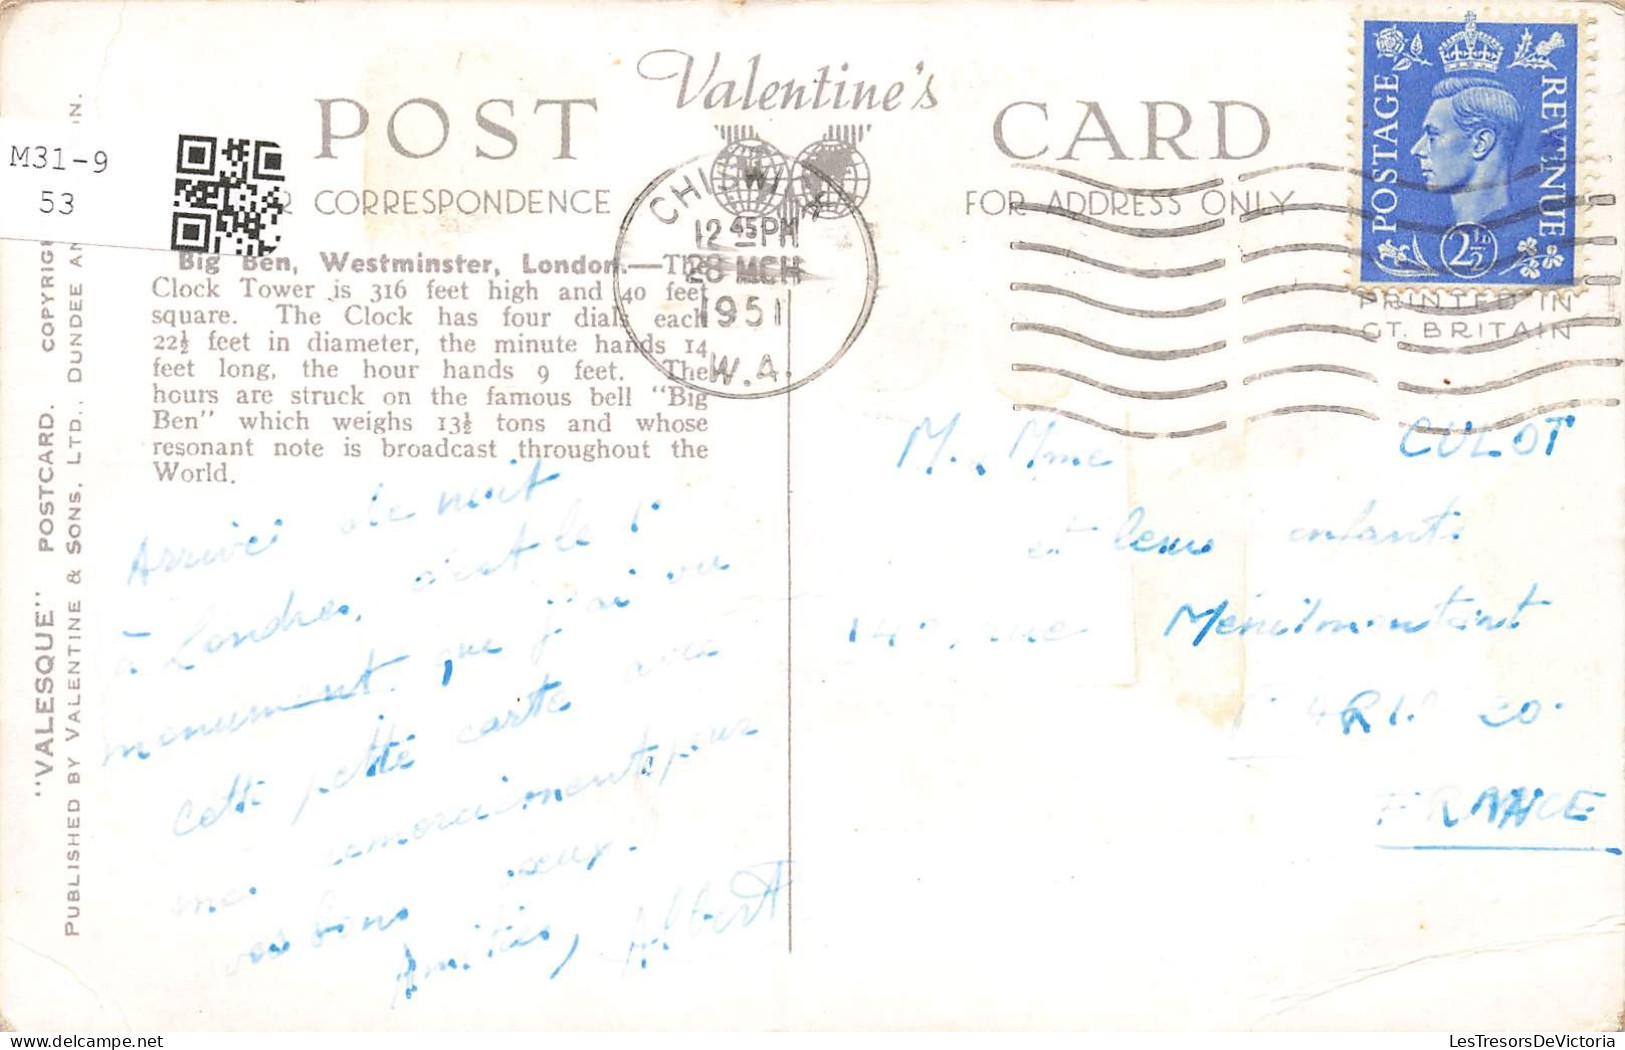 Valentine's
POST CARD
CORRESPONDENCE
FOR ADDRESS ONLY
M31-9
53
Big Ben, Westminster, London.—The
Clock Tower is 316 feet high and 40 feet
square. The Clock has four dials each
22½ feet in diameter, the minute hands 14
feet long, the hour hands 9 feet. The
hours are struck on the famous bell "Big
Ben" which weighs 13½ tons and whose
resonant note is broadcast throughout the
World.
CHISWICK
12 45 PM
28 MCH
1951
W.4.
POSTAGE
REVENUE
2½D
PRINTED IN
GT. BRITAIN
"VALESQUE" POSTCARD. COPYRIGH
PUBLISHED BY VALENTINE & SONS, LTD., DUNDEE AN ON.
Arrivé de nuit
à Londres, c'est le 1r
monument que j'ai vu
cette petite carte avec
mes remerciements pour
vos bons
Amitiés, Albert
M. Mme CULOT
et leurs enfants
140, rue Ménilmontant
PARIS 20.
FRANCE
LesTresorsDeVictoria